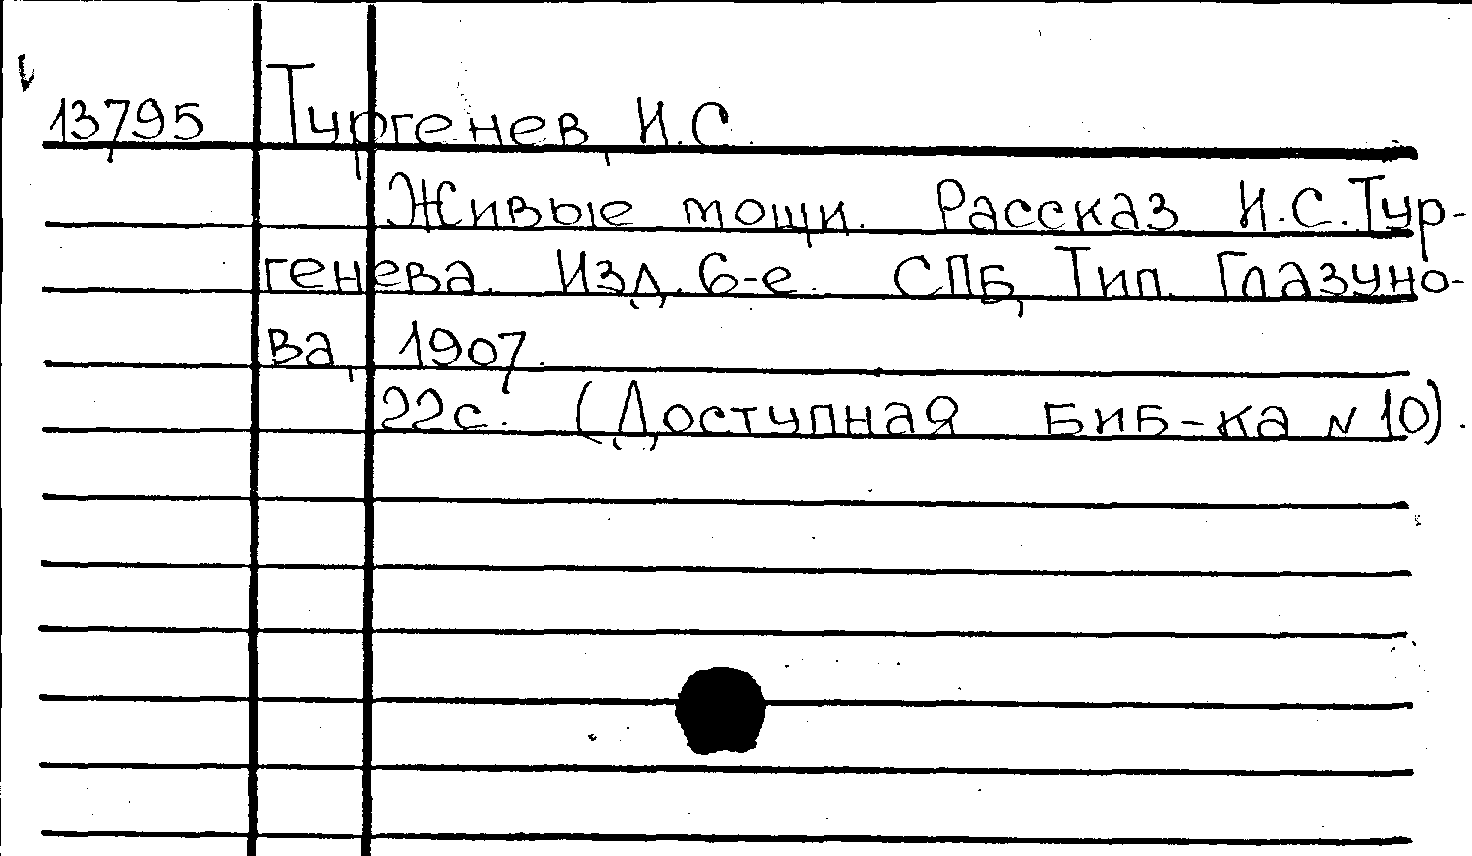 13795 Тургенев, И.С.
Живые мощи. Рассказ И.С.Тур-
генева. Изд. 6-е. СПБ, Тип. Глазуно-
ва, 1907.
22с. (Доступная биб-ка № 10).